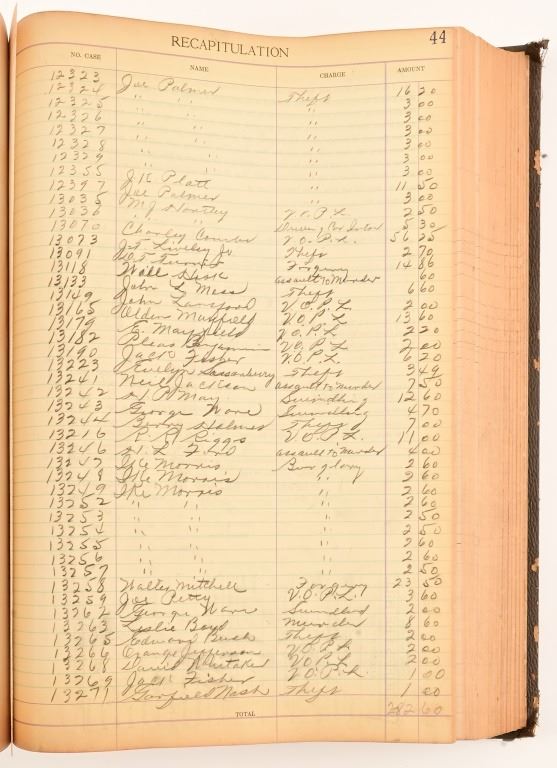 44
RECAPITULATION
NO. CASE NAME CHARGE AMOUNT
12323
12324 Joe Palmer Theft 16 20
12325 " " " 3 00
12326 " " " 3 00
12327 " " " 3 00
12328 " " " 3 00
12329 " " " 3 00
12355 " " " 3 00
12397 J. K. Platt " 11 50
13035 Joe Palmer " 3 00
13036 M. J. Huntley V.O.P.L. 2 50
13070 " " 5 30
13073 Charley V.O.P.L. 56 25
13091 Jr. Theft 2 70
13118 Forgery 14 86
13133 Will assault to Murder 60
13149 John L. Moss Theft 6 60
13165 John V.O.P.L. 2 00
13179 Alden V.O.P.L. 13 60
13182 E. Mayfield V.O.P.L. 2 20
13190 V.O.P.L. 2 00
13223 Jack Fisher V.O.P.L. 6 20
13241 Evelyn Theft 3 49
13242 Neil Jackson assault to murder 7 50
13243 May Swindling 12 60
13244 George Ware Swindling 4 70
13216 Holmes Theft 7 00
13246 Riggs V.O.P.L. 11 00
13247 assault to murder 4 00
13248 Ike Morris Burglary 2 60
13249 Ike Morris " 2 60
13252 Ike Morris " 2 60
13253 " " " 2 50
13254 " " " 2 50
13255 " " " 2 60
13256 " " " 2 60
13257 " " " 2 50
13258 Walter Mitchell Forgery 23 50
13259 Joe Petty V.O.P.L. 3 60
13262 George Ware Swindling 2 00
13263 Leslie Boyd murder 8 60
13265 Edmond Bush Theft 2 00
13266 Orange Jefferson V.O.P.L. 2 00
13268 David Whitaker V.O.P.L. 2 00
13269 Jack Fisher V.O.P.L. 1 00
13271 Garfield Nash Theft 1 00
TOTAL 282 60